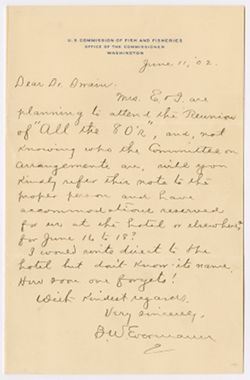 U. S. COMMISSION OF FISH AND FISHERIES
OFFICE OF THE COMMISSIONER
WASHINGTON
June 11, 02.
Dear Dr. Swain:
Mrs. E & I are
planning to attend the Reunion
of "All the 80's", and, not
knowing who the Committee on
Arrangements are, will you
kindly refer this note to the
proper person and have
accommodations reserved
for us at the hotel or elsewhere
for June 16 to 18?
I would write direct to the
hotel but don't know its name.
How soon one forgets!
With kindest regards,
Very sincerely,
B. W. Evermann